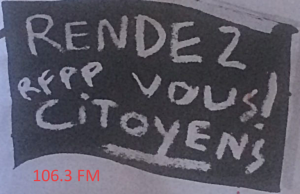 RENDEZ
RFPP VOUS!
CiTOYENS
106.3 FM